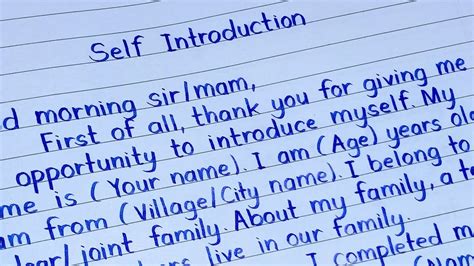 Self Introduction
d morning sir/mam,
First of all, thank you for giving me
opportunity to introduce myself. My
me is (Your name). I am (Age) years old
am from (Village/City name). I belong to
lear/ joint family. About my family, a to
ers live in our family.
I completed m
(Nam